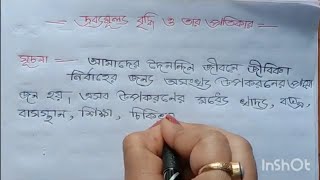 দ্রব্যমূল্য বৃদ্ধি ও তার প্রতিকার
সূচনা :- আমাদের দৈনন্দিন জীবনে জীবিকা
নির্বাহের জন্য অসংখ্য উপকরণের প্রয়ো
জন হয়। এসব উপকরণের মধ্যে খাদ্য, বস্ত্র,
বাসস্থান, শিক্ষা, চিকিৎস
InShOt